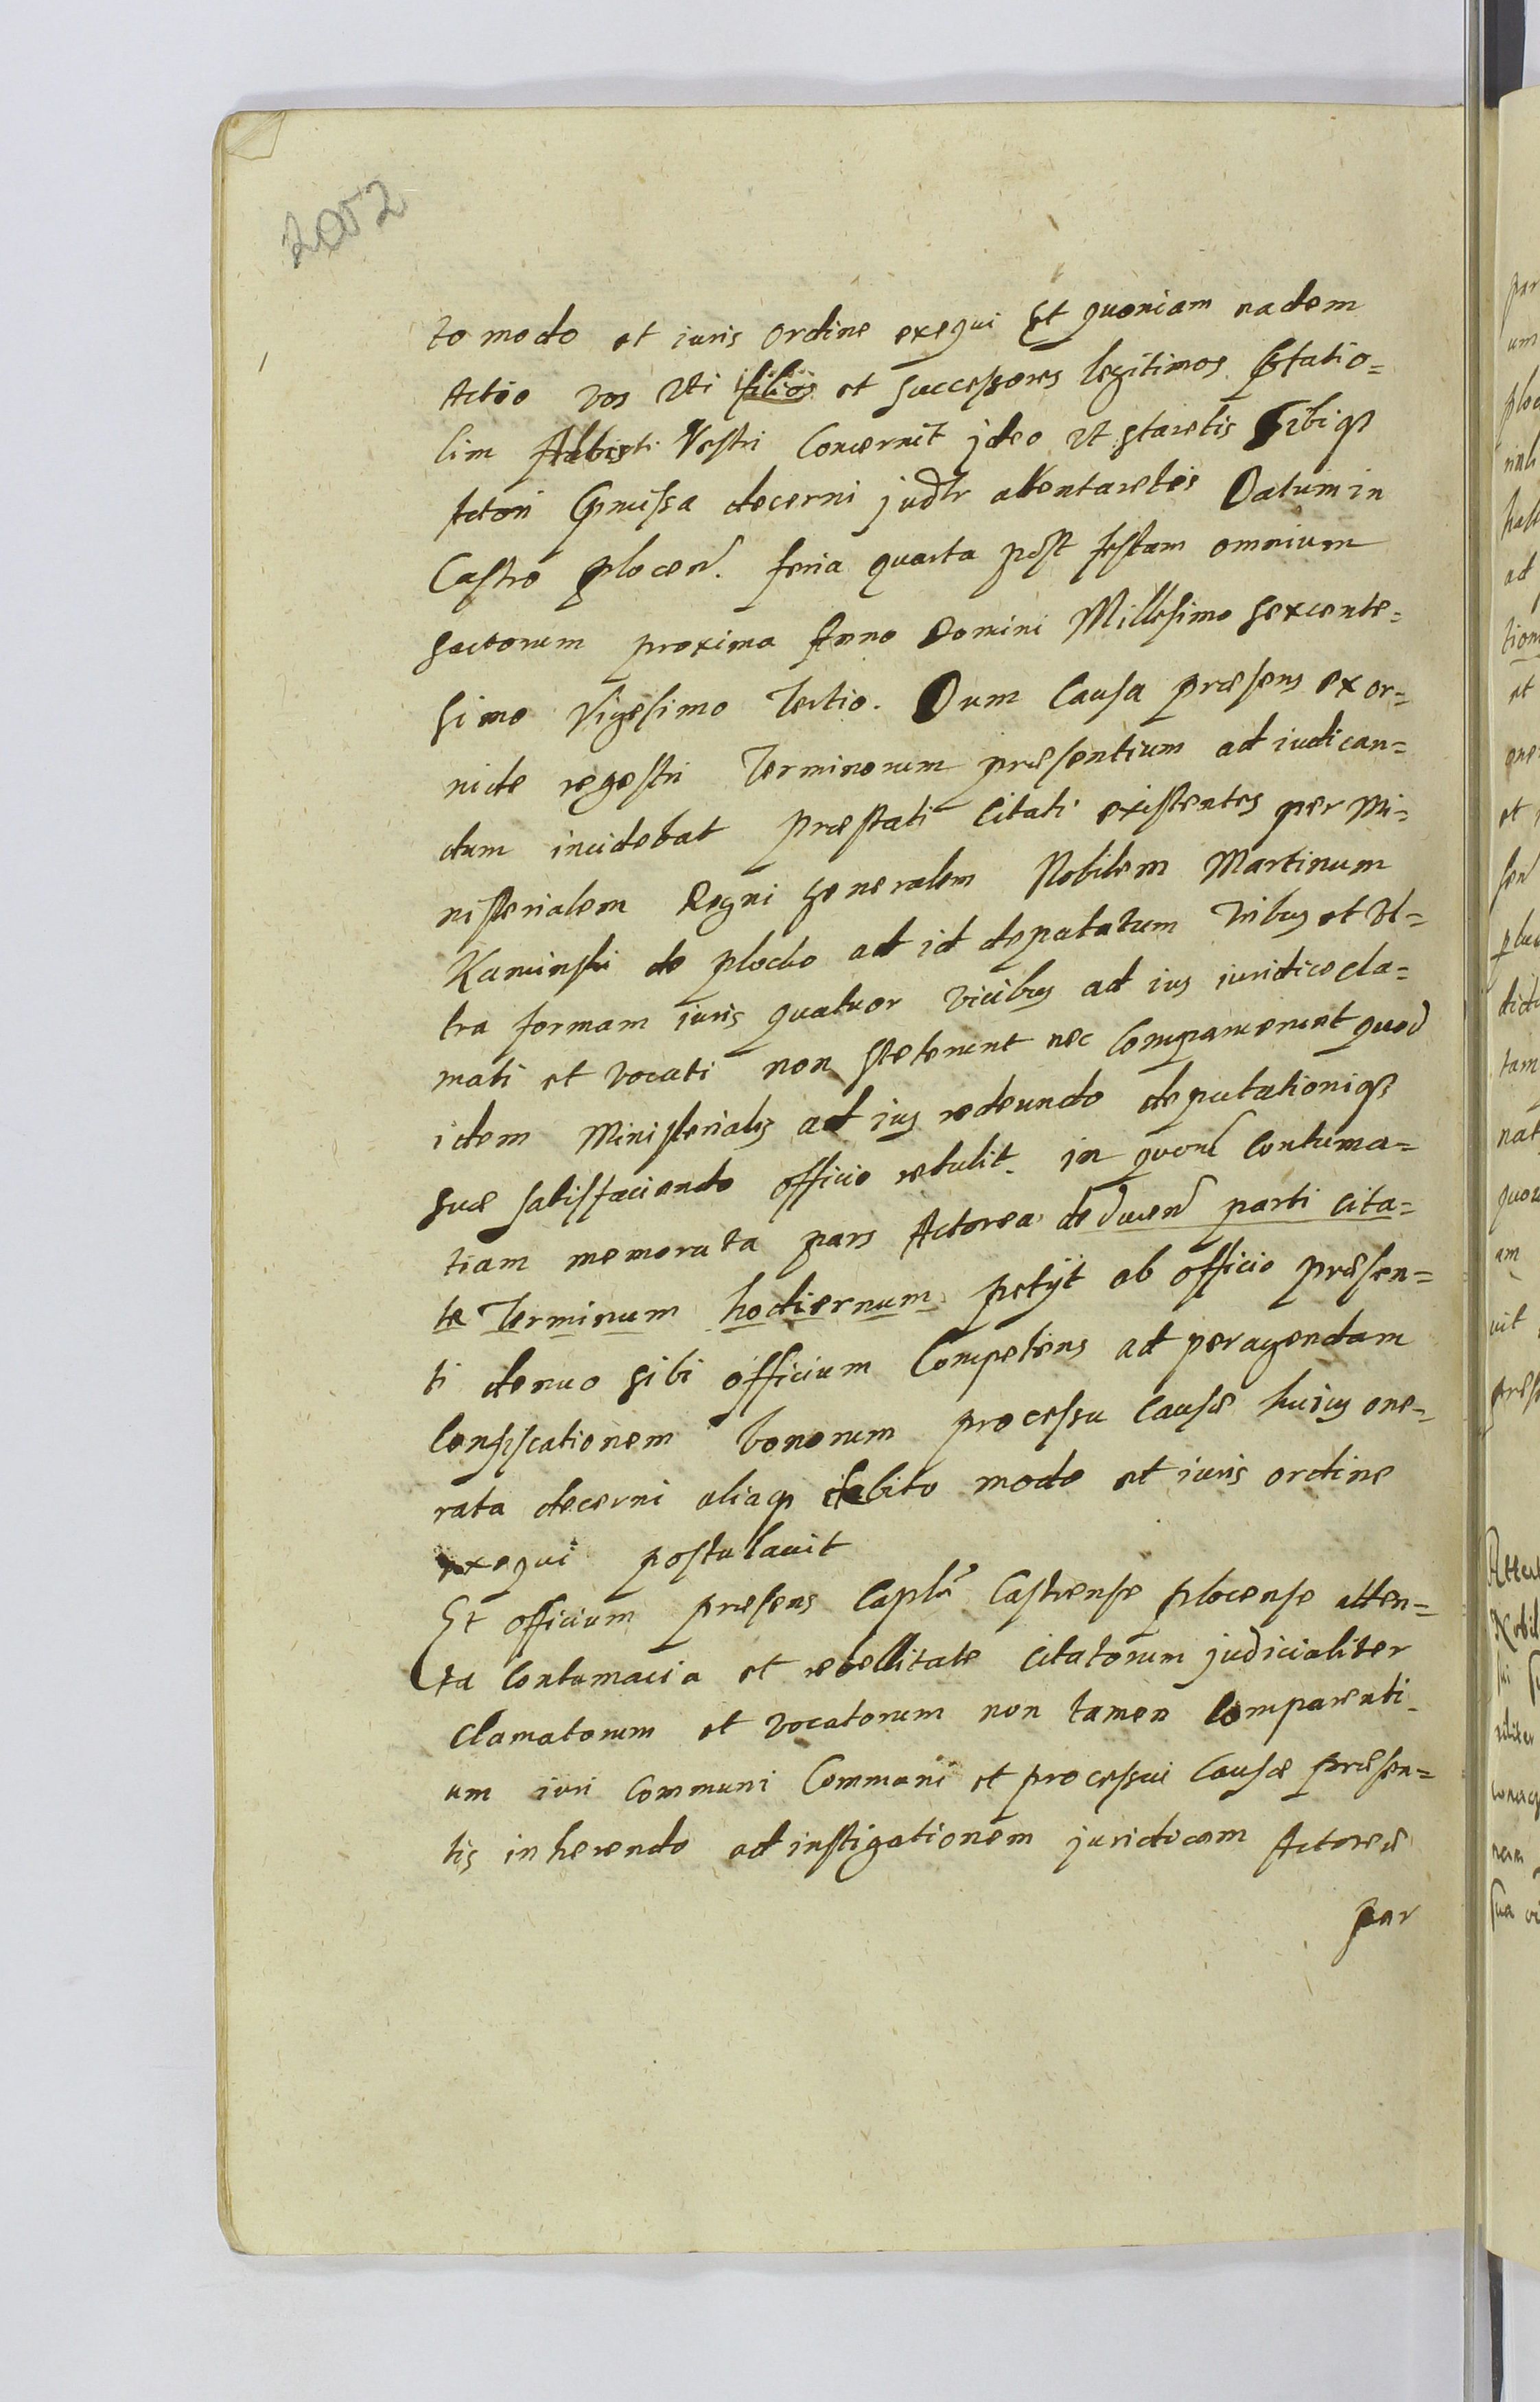 2052
to modo et iuris ordine exequi Et quoniam eadem
Actio vos uti filios et successores legitimos
lim Alberti Vestri Concernit ideo ut staretis Sibiq3
Actori decerni judlr attentaretis Datum in
Castro plocen. feria quarta post festum omnium
sactorum proxima Anno Domini Millesimo sexcente=
simo Vigesimo Tertio. Dum Causa præsens ex or=
nide regestri Terminorum præsentium ad iudican=
dum incidebat præstati Citati existentes per Mi=
nisterialem Regni generalem Nobilem Martinum
Kaminski de plocko ad id deputatum tribus et Ul=
tra formam iuris quatuor vicibus ad ius iuridice cla=
mati et vocati non steterunt nec Comparuerunt quod
idem Ministerialis ad ius redeundo deputationiq3
suæ satisfaciendo officio retulit. in quorul Contuma=
tiam memorata pars Actorea deducen parti cita=
te Terminum hodiernum petijt ab officio præsen=
ti denuo sibi officium Competens ad peragendam
Confiscationem bonorum processu causæ huius one=
rata decerni aliaq3 debito modo et iuris ordine
exequi postulauit
Et officium præsens Caplu Castrense plocense atten=
ta Contumacia et rebellitate Citatorum judicialiter
clamatorum et vocatorum non tamen Comparenti
um iuri Communi Communi et processui Causæ præsen=
tis inherendo ad instigationem juridicam Actoreæ
par